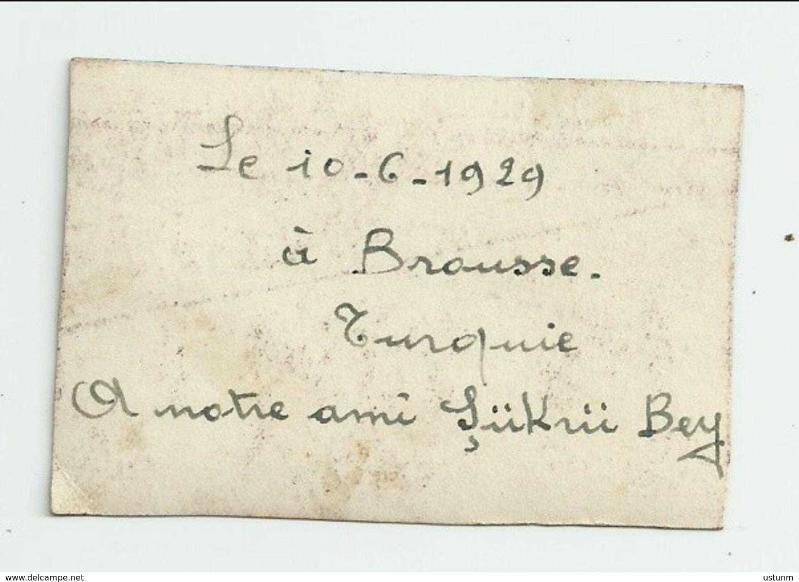 Le 10-6-1929
à Brousse.
Turquie
A notre ami Şükrü Bey
www.delcampe.net
ustunm